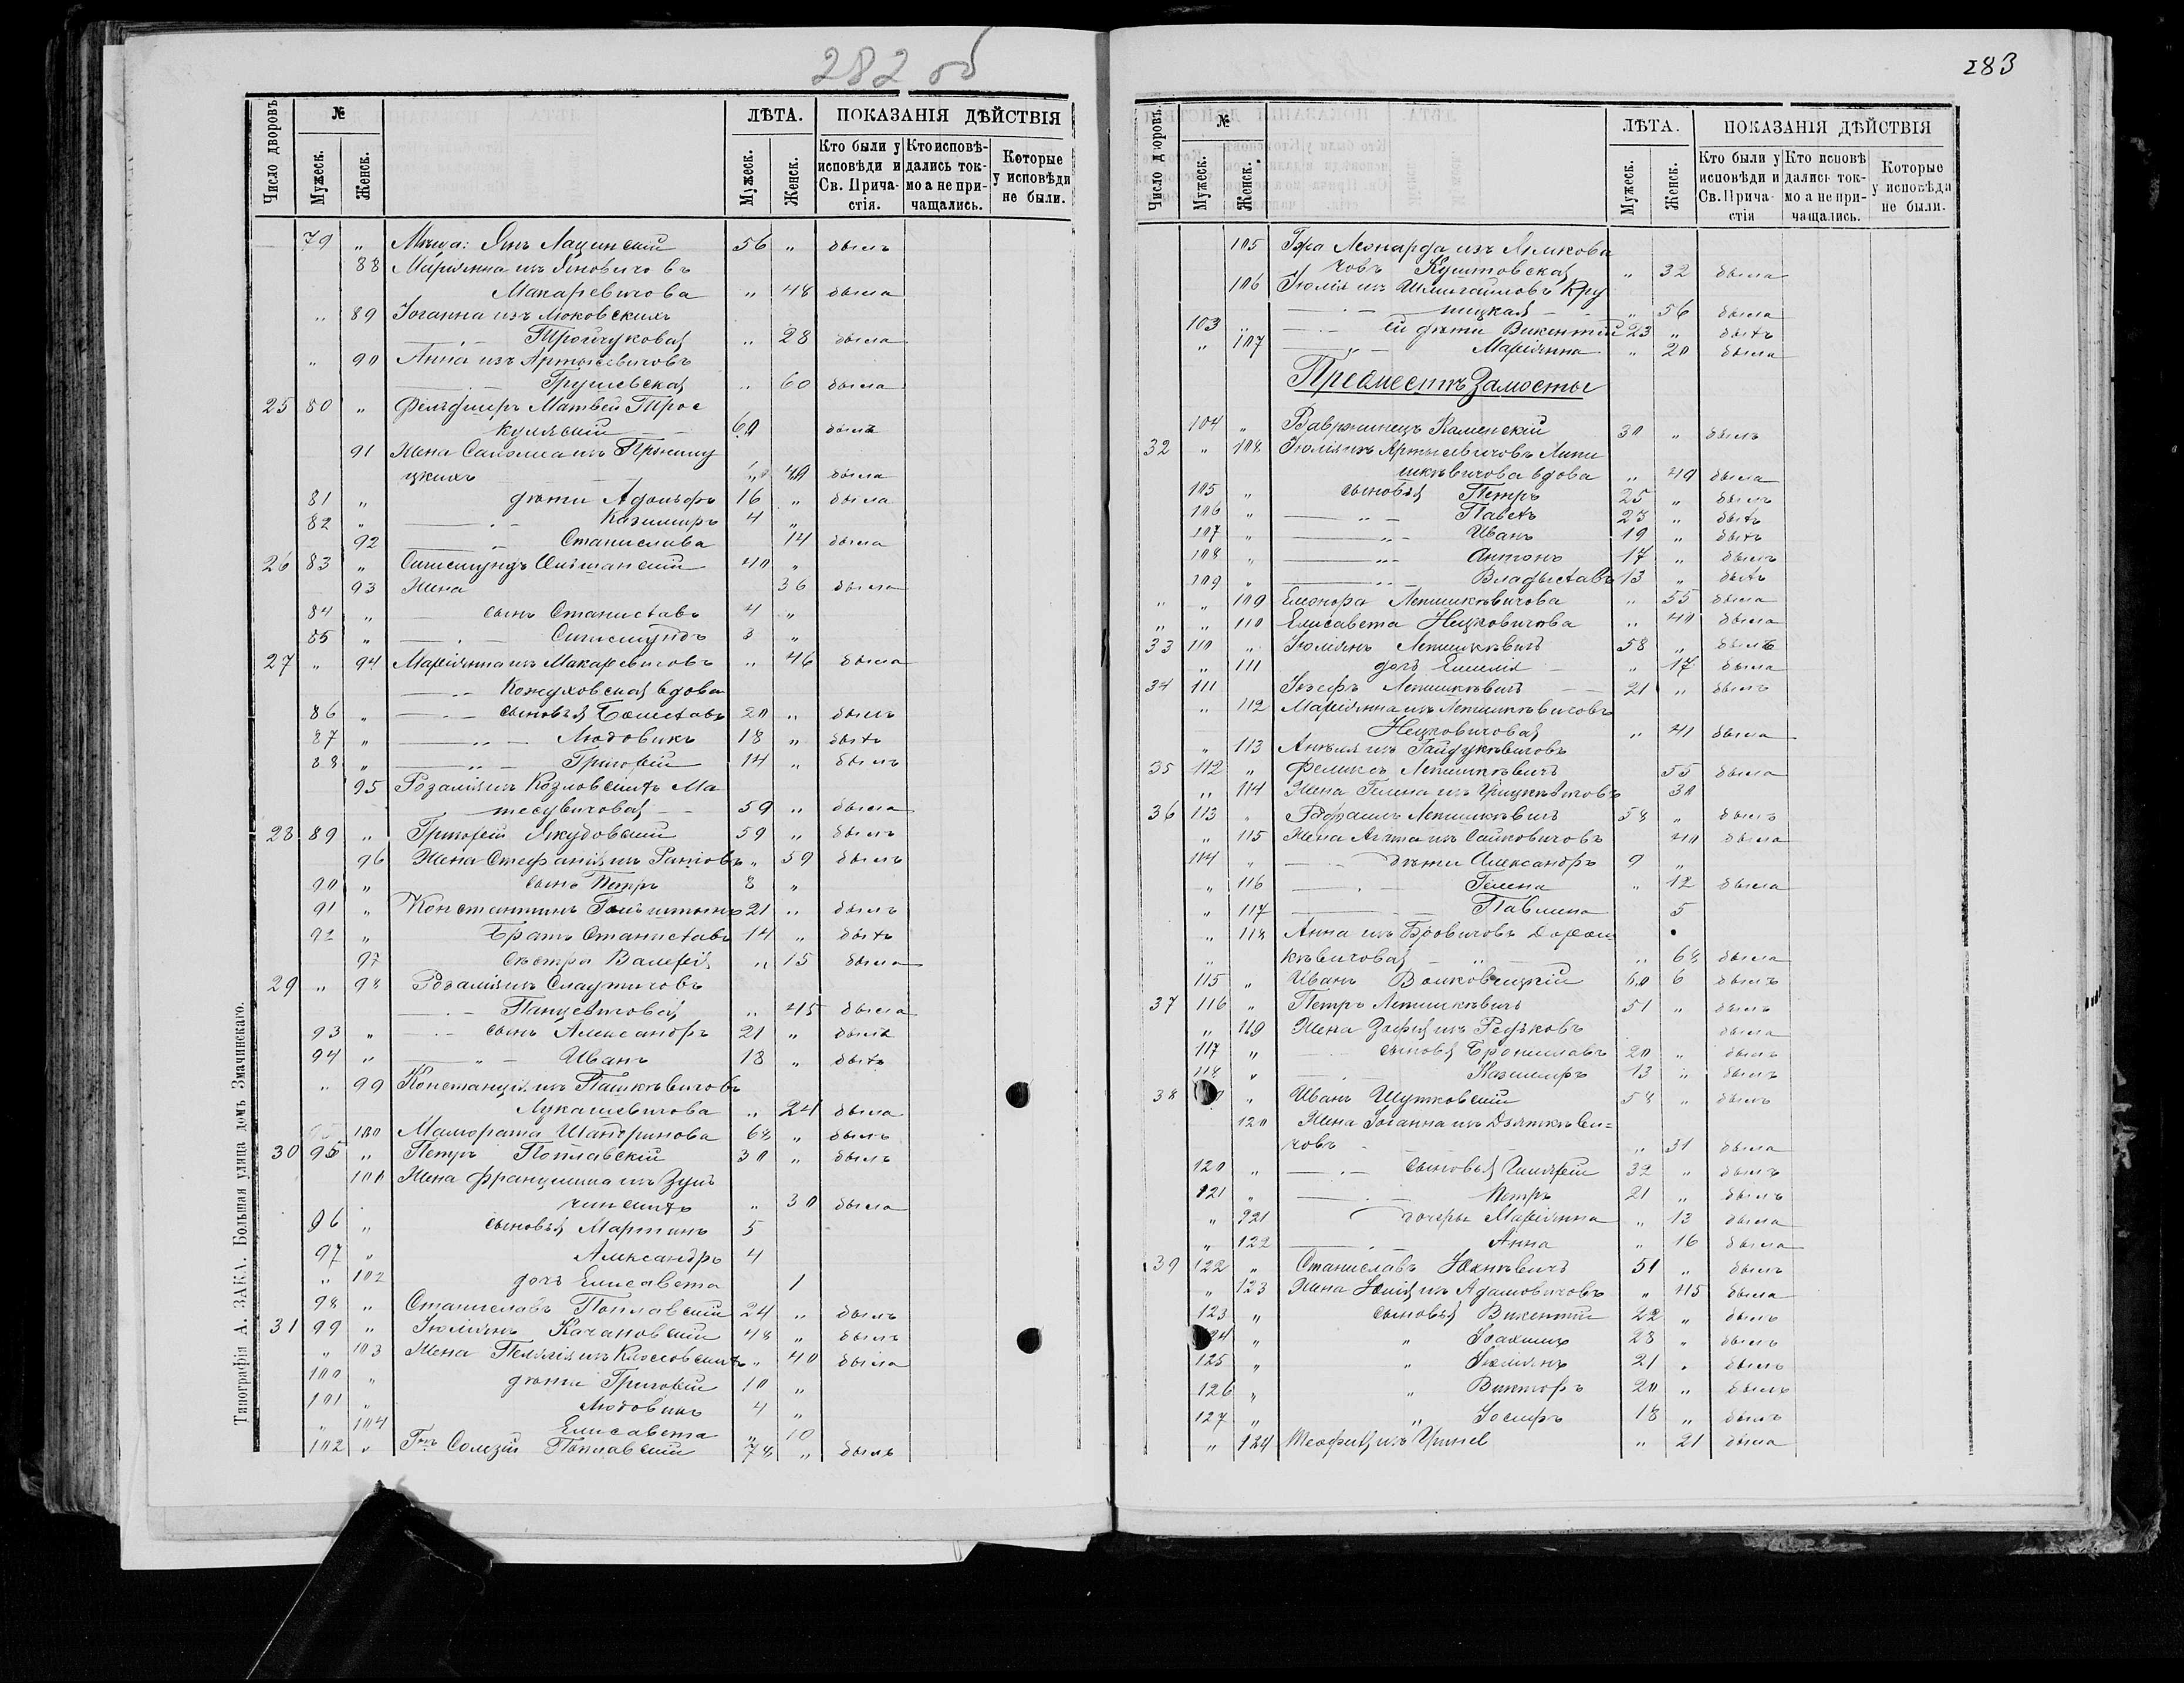 282 об
Число дворовъ
№
Мужеск.
Женск.
ЛѢТА.
Мужеск.
Женск.
ПОКАЗАНІЯ ДѢЙСТВІЯ
Кто были у исповѣди и Св. Прича-стія.
Кто исповѣ-дались ток-мо а не при-чащались.
Которые у исповѣди не были.
79 „ Янъ 56 „ былъ
88 Маріянна изъ Яновичовъ
Макаревичова „ 48 была
„ 89 Іоганна изъ
28 была
„ 90 Анна изъ Артысевичовъ
Грушевская „ 60 была
25 80 „ Фельдшеръ Матвей Трос
60 былъ
91 Жена Саломеа изъ
цкихъ 49 была
81 „ дѣти Адольфъ 16 „ была
82 „ Казимиръ 4 „
92 Станислава 14 была
26 83 „ Сигизмундъ 40 „
93 Жена 36 была
84 „ сынъ Станиславъ 4 „
85 „ Сигизмундъ 3 „
27 „ 94 Маріянна изъ Макаревичовъ „ 46 была
Кожуховская вдова
86 „ сыновья Болеславъ 20 „ былъ
87 „ Людовикъ 18 „ былъ
88 „ Григорій 14 „ былъ
95 Розалія изъ Козловскихъ Ма
59 „ была
28 89 „ Григорій Якубовскій 59 „ былъ
96 Жена Стефанія изъ „ 59 былъ
90 „ сынъ Петръ 8 „
91 „ Константинъ 21 „ былъ
92 „ Братъ Станиславъ 14 „ былъ
97 Сестра Валерія „ 15 была
29 „ 98 Розалія изъ
Панцевичовая „ 45 была
93 „ сынъ Александръ 21 „ былъ
94 „ Иванъ 18 „ былъ
„ 99 Констанція изъ Пашкевичовъ
Лукашевичова „ 24 была
100 68 „ былъ
30 95 „ Петръ Поплавскій 30 „ былъ
101 Жена Францишка изъ
чинскихъ „ 30 была
96 „ сыновья Мартинъ 5
97 „ Александръ 4
„ 102 дочь Елисавета 1
98 „ Станиславъ Поплавскій 24 „ былъ
31 99 „ Юліянъ Качановскій 48 „ былъ
„ 103 Жена Пелагія изъ „ 40 была
100 „ дѣти Григорій 10 „
101 „ Людовикъ 4 „
„ 104 Елисавета „ 10
102 „ Поплавскій 78 „ былъ
Типографія А. ЗАКА. Большая улица домъ Змачинскаго.
283
Число дворовъ.
№
Мужеск.
Женск.
ЛѢТА.
Мужеск.
Женск.
ПОКАЗАНІЯ ДѢЙСТВІЯ
Кто были у исповѣди и Св. Прича-стія
Кто исповѣ дались ток-мо а не при-чащались.
Которые у исповѣди не были.
105 Леонарда изъ
човъ „ 32 была
106 Юлія изъ Кру
пицкая „ 56 была
103 „ ей дѣти Викентій 23 „ былъ
„ 107 Маріянна „ 20 была
Предмѣстъ Замостье
104 „ Каменскій 30 „ былъ
32 „ 108 Юлія изъ Артысевичовъ
вдова „ 49 была
105 „ сыновья Петръ 25 „ былъ
106 „ Павелъ 23 „ былъ
107 „ Иванъ 19 „ былъ
108 „ Антонъ 17 „ былъ
109 „ Владыславъ 13 „ былъ
„ „ 109 Елеонора Лепешкевичова „ 55 была
„ „ 110 Елисавета Нецковичова „ 40 была
33 110 „ Юліянъ Лепешкевичъ 58 „ былъ
„ 111 дочь Емилія „ 17 была
34 111 Іозефъ Лепешкевичъ 21 „ былъ
„ 112 Маріянна изъ Лепешкевичовъ
Нецковичовая „ 41 была
„ 113 Анеля изъ Гайдукевичовъ
35 112 „ Феликсъ Лепешкевичъ 55 была
„ 114 Жена Гелена изъ 30
36 113 „ Лепешкевичъ 58 „ былъ
„ 115 Жена Анна изъ Сайковичовъ 40 была
114 „ дѣти Александръ 9 „
„ 116 Гелена „ 12 была
„ 117 Павлина 5
„ 118 Анна изъ
„ кевичовая „ 68 была
115 „ Иванъ 60 6 былъ
37 116 „ Петръ Лепешкевичъ 51 „ былъ
„ 119 Жена Зофія изъ была
117 „ сыновья Брониславъ 20 „ былъ
118 „ Казимиръ 13 „ былъ
38 „ Иванъ Шутковскій 58 „ былъ
120 Жена Іоганна изъ
човъ „ 31 была
120 „ сыновья 32 „ былъ
121 „ Петръ 21 „ былъ
„ 121 дочери Маріянна „ 13 была
„ 122 Анна „ 16 была
39 122 „ Станиславъ 51 „ былъ
„ 123 Жена Юлія изъ Адамовичовъ „ 45 была
123 „ сыновья Викентій 22 „ былъ
124 „ „ Іоахимъ 23 „ былъ
125 „ „ Юліянъ 21 „ былъ
126 „ „ Викторъ 20 „ былъ
127 „ „ Іосифъ 18 „ былъ
„ 124 „ 21 была